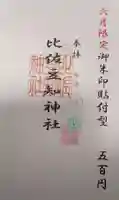 六月限定御朱印貼付型 五百円
奉拝
比佐豆知神社